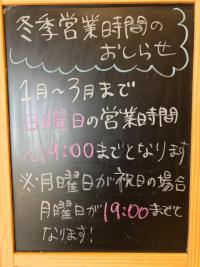 冬季営業時間の
おしらせ
1月～3月まで
日曜日の営業時間
19:00までとなります
※月曜日が祝日の場合
月曜日が19:00までと
なります!